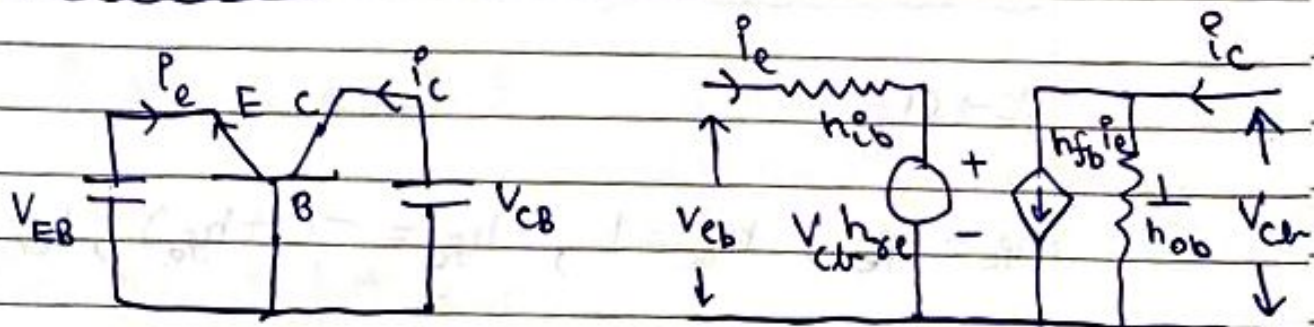 i_e E C i_c
V_EB B V_CB
i_e i_c
h_ib
V_eb V_cb h_re + - h_fb i_e 1/h_ob V_cb